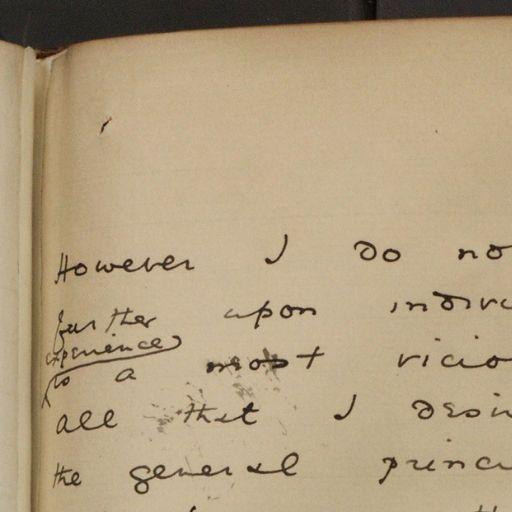 However I do no
further upon indivi
experience
is a most vicio
all that I desir
the general princi